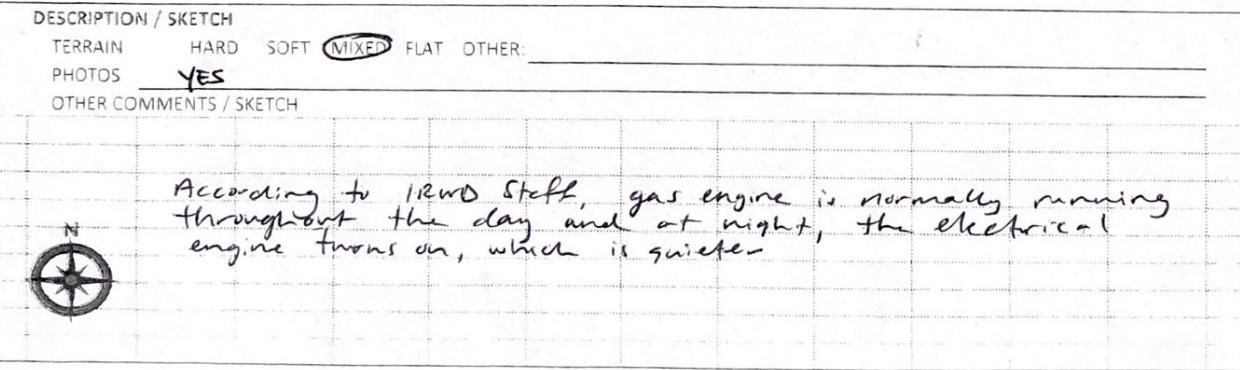 DESCRIPTION / SKETCH
TERRAIN HARD SOFT MIXED FLAT OTHER:
PHOTOS YES
OTHER COMMENTS / SKETCH
According to IRWD Staff, gas engine is normally running
throughout the day and at night, the electrical
engine turns on, which is quieter
N